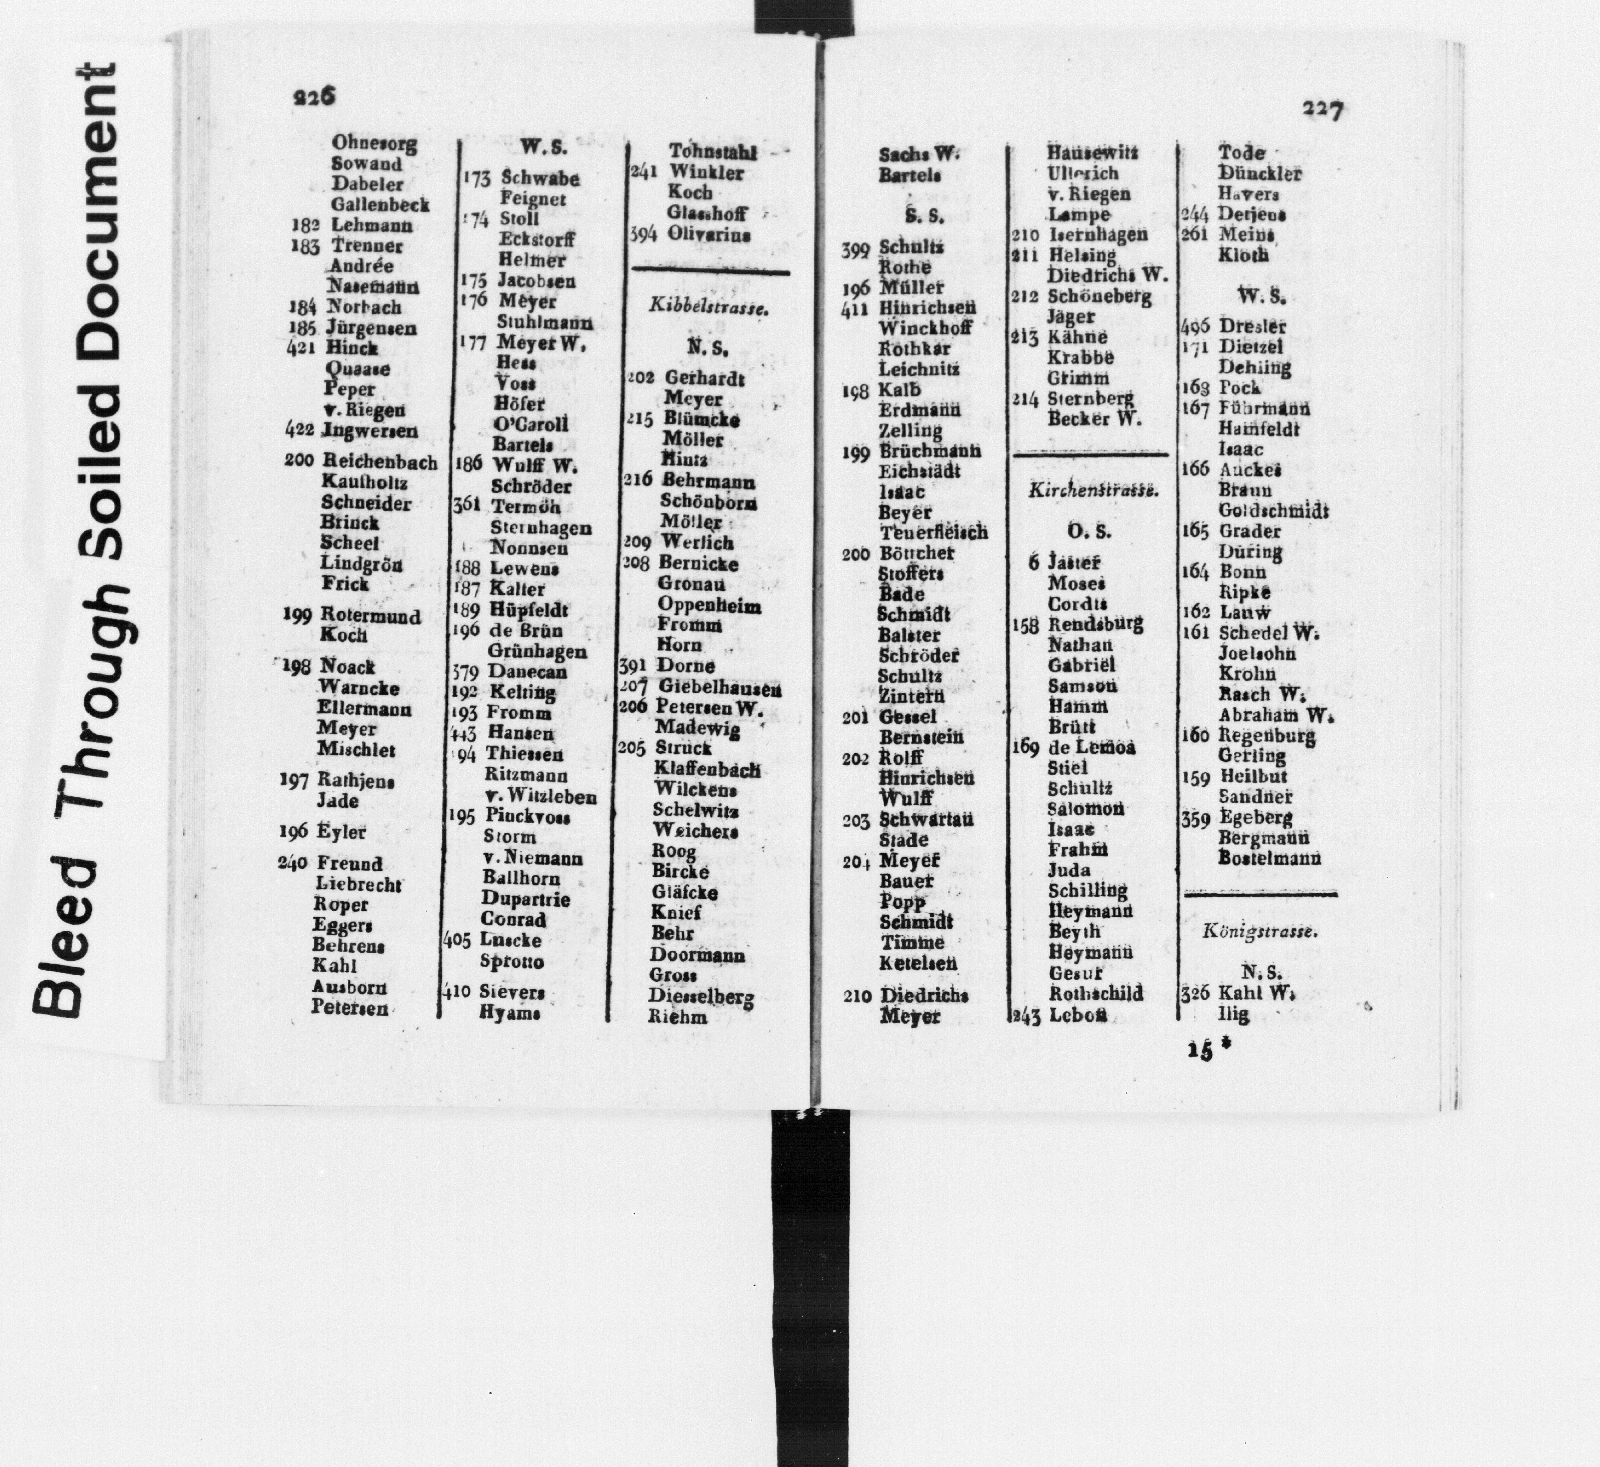 Bleed Through Soiled Document
226
Ohnesorg
Sowand
Dabeler
Gallenbeck
182 Lehmann
183 Trenner
Andrée
Nasemann
184 Norbach
185 Jürgensen
421 Hinck
Quaase
Peper
v. Riegen
422 Ingwersen
200 Reichenbach
Kaufholtz
Schneider
Brinck
Scheel
Lindgrön
Frick
199 Rotermund
Koch
198 Noack
Warncke
Ellermann
Meyer
Mischlet
197 Rathjens
Jade
196 Eyler
240 Freund
Liebrecht
Roper
Eggers
Behrens
Kahl
Ausborn
Petersen
W. S.
173 Schwabe
Feignet
174 Stoll
Eckstorff
Helmer
175 Jacobsen
176 Meyer
Stuhlmann
177 Meyer W.
Hess
Voss
Höfer
O'Caroli
Bartels
186 Wulff W.
Schröder
361 Termöh
Sternhagen
Nonnsen
188 Lewens
187 Kalter
189 Hüpfeldt
196 de Brün
Grünhagen
379 Danecan
192 Kelting
193 Fromm
443 Hansen
94 Thiessen
Ritzmann
v. Witzleben
195 Pinckvoss
Storm
v. Niemann
Ballhorn
Dupartrie
Conrad
405 Luscke
Sprotto
410 Sievers
Hyams
Tohnstahl
241 Winkler
Koch
Glasshoff
394 Olivarius
Kibbelstrasse.
N. S.
202 Gerhardt
Meyer
215 Blümcke
Möller
Hintz
216 Behrmann
Schönborn
Möller
209 Werlich
208 Bernicke
Gronau
Oppenheim
Fromm
Horn
391 Dorne
207 Giebelhausen
206 Petersen W.
Madewig
205 Struck
Klaffenbach
Wilckens
Schelwitz
Weichers
Roog
Bircke
Gläfcke
Knief
Behr
Doormann
Gross
Diesselberg
Riehm
227
Sachs W.
Bartels
S. S.
399 Schultz
Rothe
196 Müller
411 Hinrichsen
Winckhoff
Rothkar
Leichnitz
198 Kalb
Erdmann
Zelling
199 Brüchmann
Eichstädt
Isaac
Beyer
Teuerfleisch
200 Böttcher
Stoffers
Bade
Schmidt
Balster
Schröder
Schultz
Zintern
201 Gessel
Bernstein
202 Rolff
Hinrichsen
Wulff
203 Schwartau
Stade
204 Meyer
Bauer
Popp
Schmidt
Timme
Ketelsen
210 Diedrichs
Meyer
Hausewitz
Ullerich
v. Riegen
Lampe
210 Isernhagen
211 Helsing
Diedrichs W.
212 Schöneberg
Jäger
213 Kähne
Krabbe
Grimm
214 Sternberg
Becker W.
Kirchenstrasse.
O. S.
6 Jaster
Moses
Cordts
158 Rendsburg
Nathan
Gabriel
Samson
Hamm
Brütt
169 de Lemos
Stiel
Schultz
Salomon
Isaac
Frahm
Juda
Schilling
Heymann
Beyth
Heymann
Gesur
Rothschild
243 Lebon
Tode
Dünckler
Havers
244 Detjens
261 Meins
Kloth
W. S.
496 Dresler
171 Dietzel
Dehling
163 Pock
167 Führmann
Hamfeldt
Isaac
166 Auckes
Braun
Goldschmidt
165 Grader
Düring
164 Bonn
Ripke
162 Lauw
161 Schedel W.
Joelsohn
Krohn
Rasch W.
Abraham W.
160 Regenburg
Gerling
159 Heilbut
Sandner
359 Egeberg
Bergmann
Bostelmann
Königstrasse.
N. S.
326 Kahl W.
Ilig
15 *